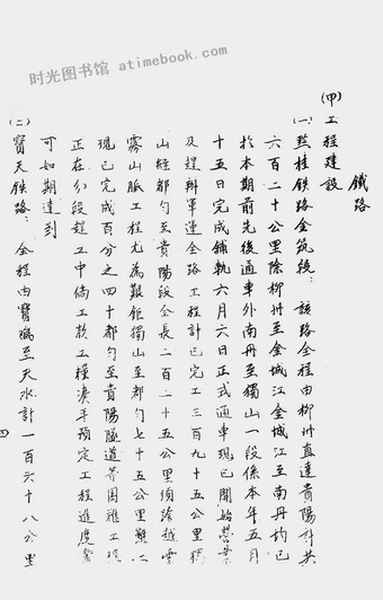 时光图书馆 atimebook.com
鐵路
(甲)工程建設
(一)黔桂鉄路金筑段：該路全程由柳州直達貴陽計共
六百二十公里除柳州至金城江金城江至南丹均已
於本期前先後通車外南丹至獨山一段係本年五月
十五日完成鋪軌六月六日正式通車現已開始營業
及趕辦軍運全路工程計已完工三百九十五公里獨
山經都勻至貴陽段全長二百二十五公里須跨越雲
霧山脈工程尤為艱鉅獨山至都勻七十五公里興工
現已完成百分之四十都勻至貴陽隧道等困难工程
正在分段趕工中倘工款工糧湊手預定工程進度當
可如期達到
(二)寶天鉄路：全程由寶鷄至天水計一百六十八公里
四